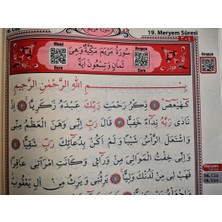 19. Meryem Sûresi
سُورَةُ مَرْيَمَ مَكِّيَّةٌ وَهِيَ
ثَمَانٍ وَتِسْعُونَ آيَةً
بِسْمِ اللّٰهِ الرَّحْمٰنِ الرَّحِيمِ
كٓهٰيٰعٓصٓ ذِكْرُ رَحْمَتِ رَبِّكَ عَبْدَهُ زَكَرِيَّا
نَادٰى رَبَّهُ نِدَٓاءً خَفِيًّا قَالَ رَبِّ اِنّ۪ي وَهَنَ الْعَظْمُ مِنّ۪ي
وَاشْتَعَلَ الرَّأْسُ شَيْبًا وَلَمْ اَكُنْ بِدُعَٓائِكَ رَبِّ
وَاِنّ۪ي خِفْتُ الْمَوَالِيَ مِنْ وَرَٓاء۪ي وَكَانَتِ امْرَاَت۪ي عَاقِرًا
فَهَبْ ل۪ي مِنْ لَدُنْكَ وَلِيًّا يَرِثُن۪ي وَيَرِثُ مِنْ اٰلِ يَعْقُوبَ